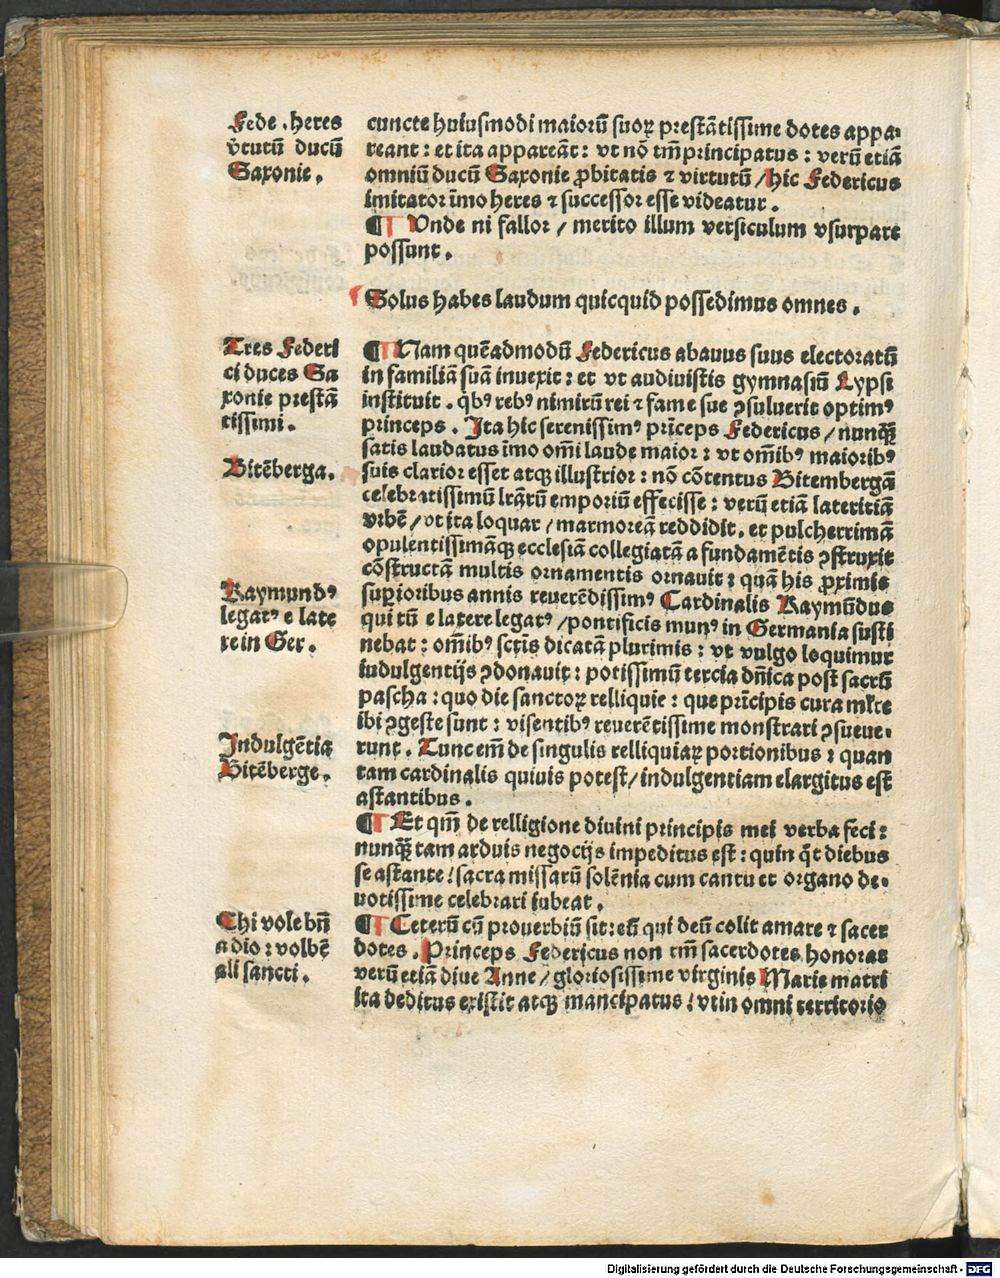 Fede . heres
v̄tutū ducū
Saxonie .
cuncte huiusmodi maiorū suoꝝ prestātissime dotes appa⸗
reant : et ita appareāt : vt nō tm̄ principatus : verū etiā
omniū ducū Saxonie ꝓbitatis ⁊ virtutū / hic Federicus
imitator īmo heres ⁊ successor esse videatur .
¶ Vnde ni fallor / merito illum versiculum vsurpare
possunt .
Solus habes laudum quicquid possedimus omnes .
Tres Federi
ci duces Sa
xonie prestā
tissimi .
Bitēberga .
¶ Nam quēadmodū Federicus abauus suus electoratū
in familiā suā inuexit : et vt audiuistis gymnasiū Lypsi
instituit . qͥbꝰ rebꝰ nimirū rei ⁊ fame sue ꝯsuluerit optimꝰ
princeps . Ita hic serenissimꝰ prīceps Federicus / nunqᷓꝫ
satis laudatus īmo omī laude maior : vt omībꝰ maioribꝰ
suis clarior esset atqꝫ illustrior : nō cōtentus Bitembergā
celebratissimū lr̄arū emporiū effecisse : verū etiā lateritiā
vrbē / vt ita loquar / marmoreā reddidit . et pulcherrimā
opulentissimāqꝫ ecclesiā collegiatā a fundamētis ꝯstruxit
cōstructā multis ornamentis ornauit : quā his ꝓximis
Raymundꝰ
legatꝰ e late
re in Ger .
suꝑioribus annis reuerēdissimꝰ Cardinalis Raymūdus
qui tū e latere legatꝰ / pontificis munꝰ in Germania susti
nebat : omībꝰ sctīs dicatā plurimis : vt vulgo loquimur
indulgentijs ꝯdonauit : potissimū tercia dn̄ica post sacrū
pascha : quo die sanctoꝝ relliquie : que prīcipis cura mīre
ibi ꝯgeste sunt : visentibꝰ reuerētissime monstrari ꝯsueue⸗
Indulgētia
Bitēberge .
runt . Tunc em̄ de singulis relliquiaꝝ portionibus : quan
tam cardinalis quiuis potest / indulgentiam elargitus est
astantibus .
¶ Et qm̄ de relligione diuini principis mei verba feci :
nunqᷓꝫ tam arduis negocijs impeditus est : quin qͦt diebus
se astante / sacra missarū solēnia cum cantu et organo de⸗
uotissime celebrari iubeat .
Chi vole bn̄
a dio : vol bē
ali sancti .
¶ Ceterū cū prouerbiū sit : eū qui deū colit amare ⁊ sacer
dotes . Princeps Federicus non tm̄ sacerdotes honorat
verū etiā diue Anne / gloriosissime virginis Marie matri
ita deditus existit atqꝫ mancipatus / vt in omni territorio
Digitalisierung gefördert durch die Deutsche Forschungsgemeinschaft - DFG